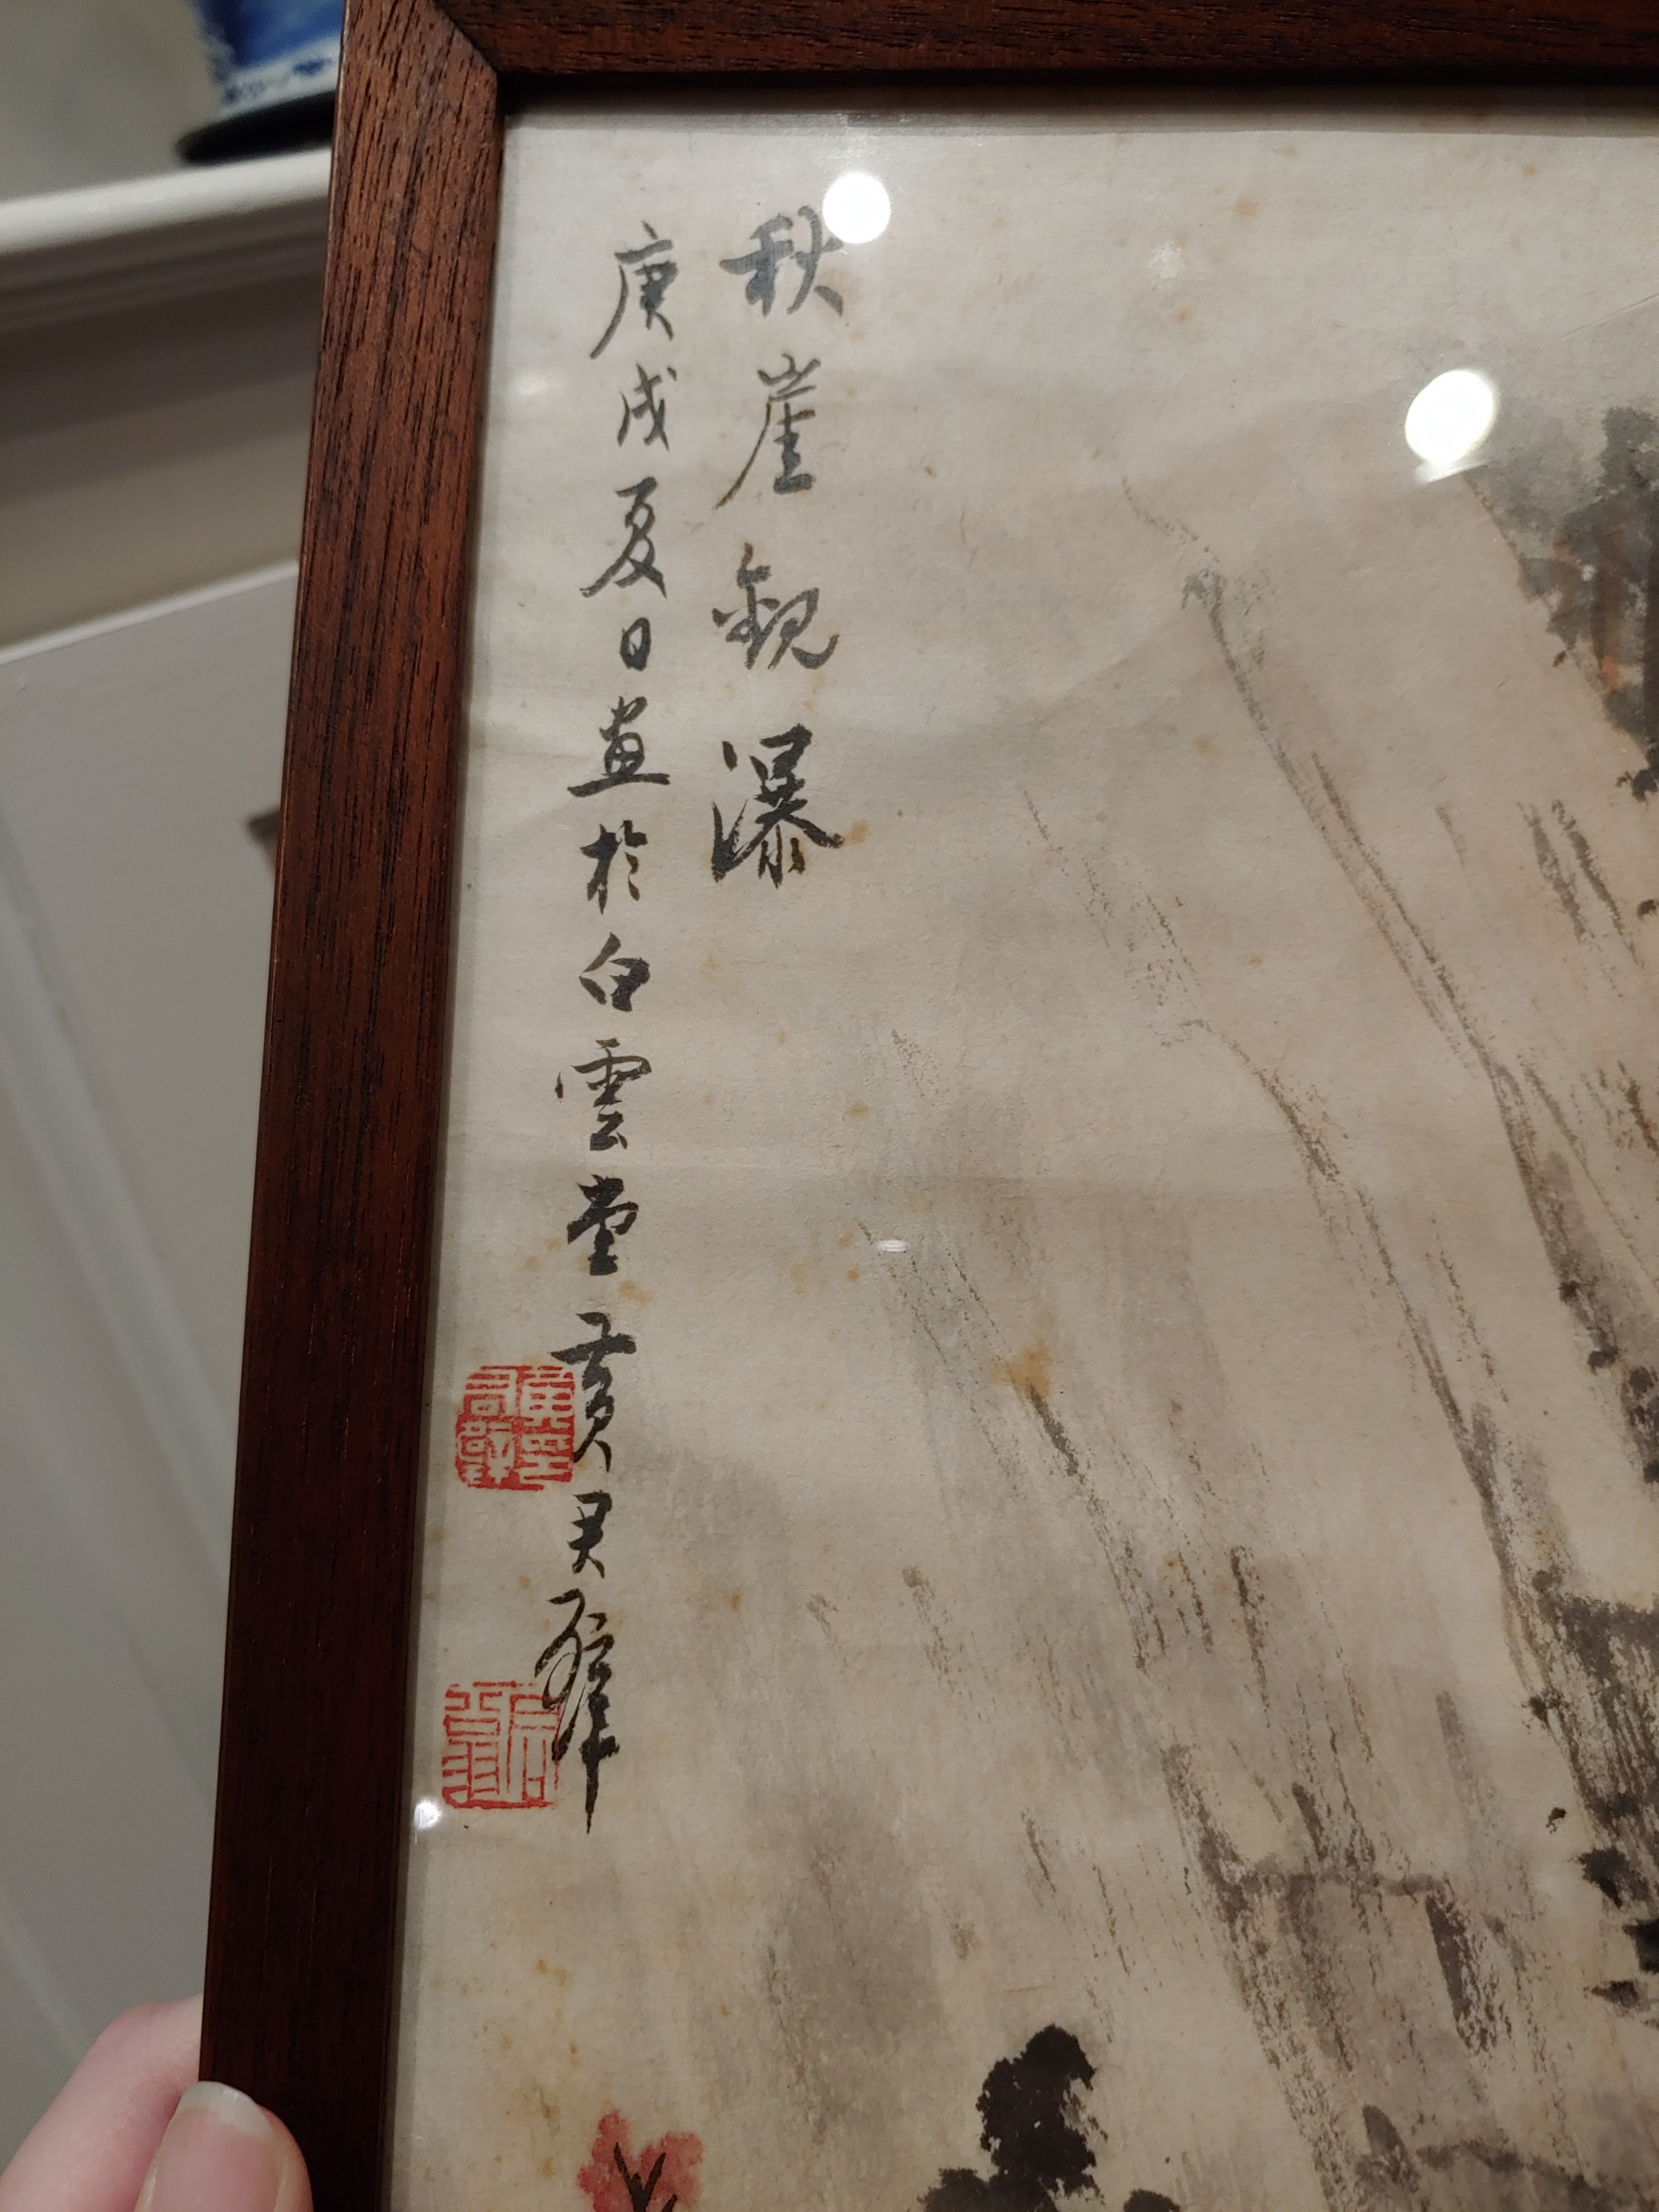 秋崖觀瀑
庚戌夏日畫於白雲堂黃君璧